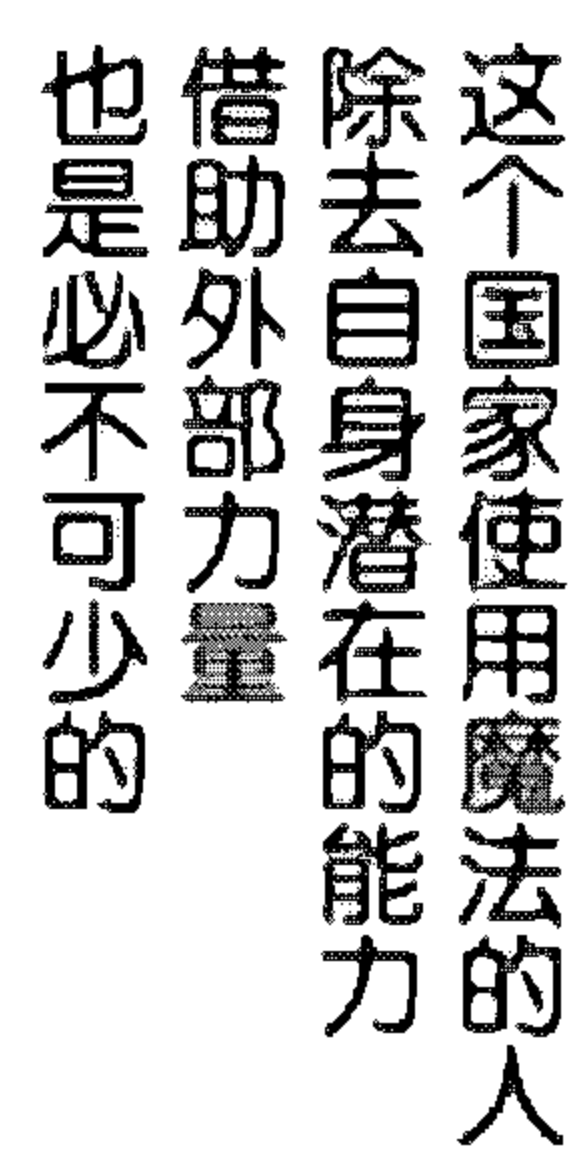 这个国家使用魔法的人
除去自身潜在的能力
借助外部力量
也是必不可少的